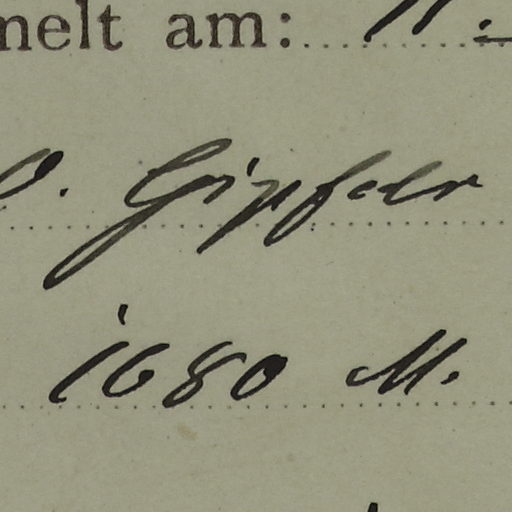 melt am: 11.
O. Gipfels
1680 M.